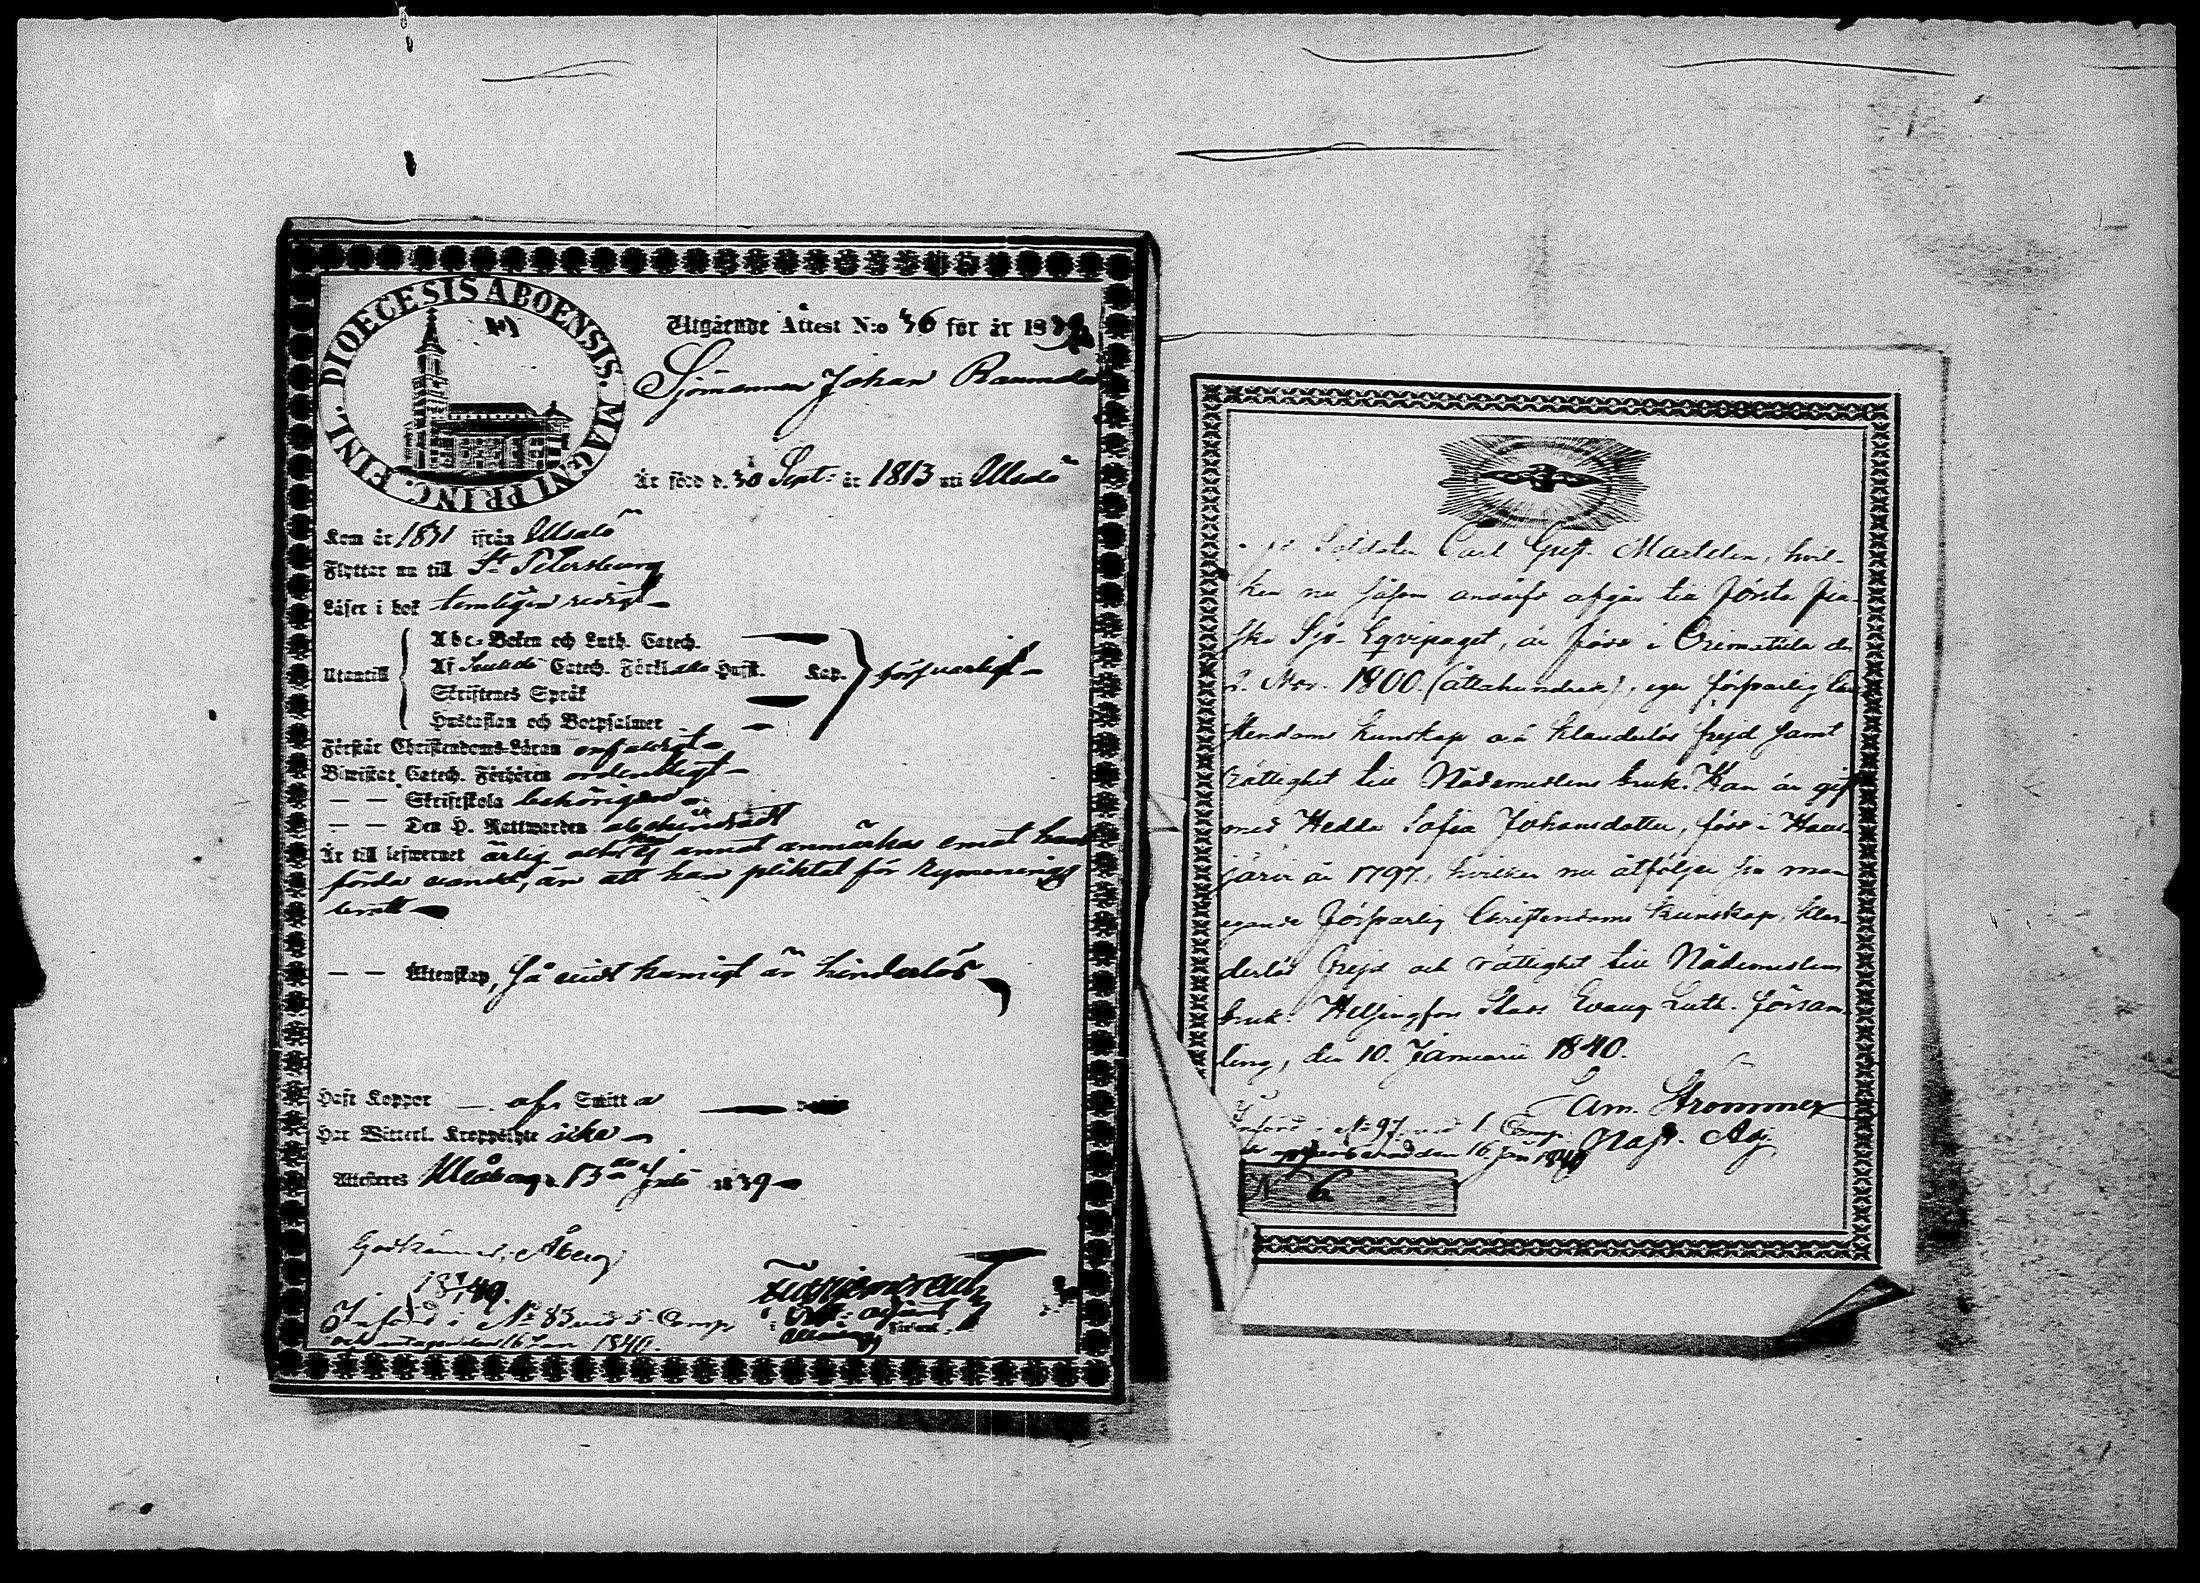 DIOECESIS ABOENSIS. MAGNI PRINC. FINL.
Utgående Attest N:o 36 för år 1839
Sjömannen Johan Raumola
Är född d. 30 Sept. år 1813 uti Ulsdö
Kom år 1831 ifrån Ulsdö
Flyttar nu till St Petersburg
Läser i bok temligen redigt
Utantill
Abc-Boken och Luth. Catech.
Af Catech. Förkl. alla Hufst. Kap. försvarligt
Skriftenes Språk
Hustaflan och Botpsalmer
Förstår Christendoms-Läran enfaldigt
Biwistat Catech. Förhören ordentligt
— — Skriftskola behörigen
— — Den H. Nattwarden
Är till lefwernet ärlig annat anmärkas emot hans
förda vandel, än att han pliktat för rymning
— — Äktenskap, så vidt kunnigt är hinderlös
Haft Koppor — af Smitta
Har Witterl. Kroppslyte icke
Attesteras Uleåborg d. 13de Juli 1839
Godkännes; Åberg
18 1/1 40.
Införd i No 83 vid 5. Comp
den 16 Jan 1840.
Soldaten Carl Gust. Martelin, hvil-
ken nu såsom anvärfd afgår till Första Fin-
ska Sjö-Eqvipaget, är född i Orimattila d.
2. Nov. 1800. (åttahundrade), eger försvarlig Chri-
stendoms kunskap och klanderlös frejd samt
rättighet till Nådemedlens bruk. Han är gift
med Hedda Sofia Johansdotter, född i Haus-
järvi år 1797, hvilken nu åtföljer sin man
egande försvarlig Christendoms kunskap, klan-
derlös frejd och rättighet till Nådemedlens
bruk. Helsingfors Stads Evang. Luth. Försam-
ling, den 10. Januarii 1840.
Sam. Strömmer
Införd i No 97 vid 1. Comp
den 16 Jan 1840
Past. Adj.
N 6